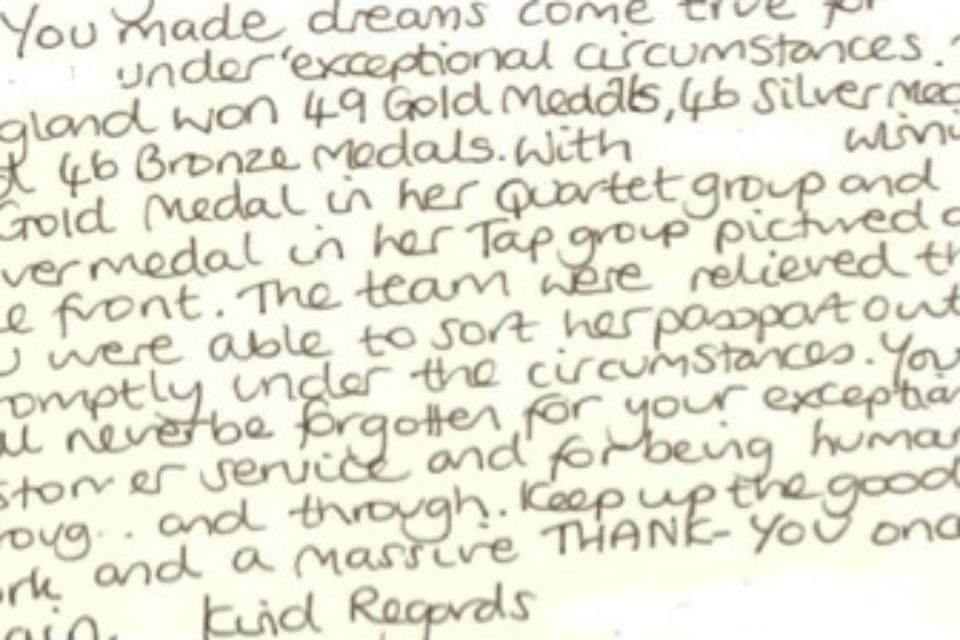 You made dreams come true for
under 'exceptional circumstances.
gland won 49 Gold Medals, 46 Silver Med
46 Bronze Medals. With winn
Gold Medal in her Quartet group and
ver medal in her Tap group pictured o
e front. The team were relieved th
u were able to sort her passpart out
omptly under the circumstances. You
ll never be forgotten for your exception
stomer service and for being human
roug.. and through. Keep up the good
rk and a massive THANK-YOU onc
ain. Kind Regards